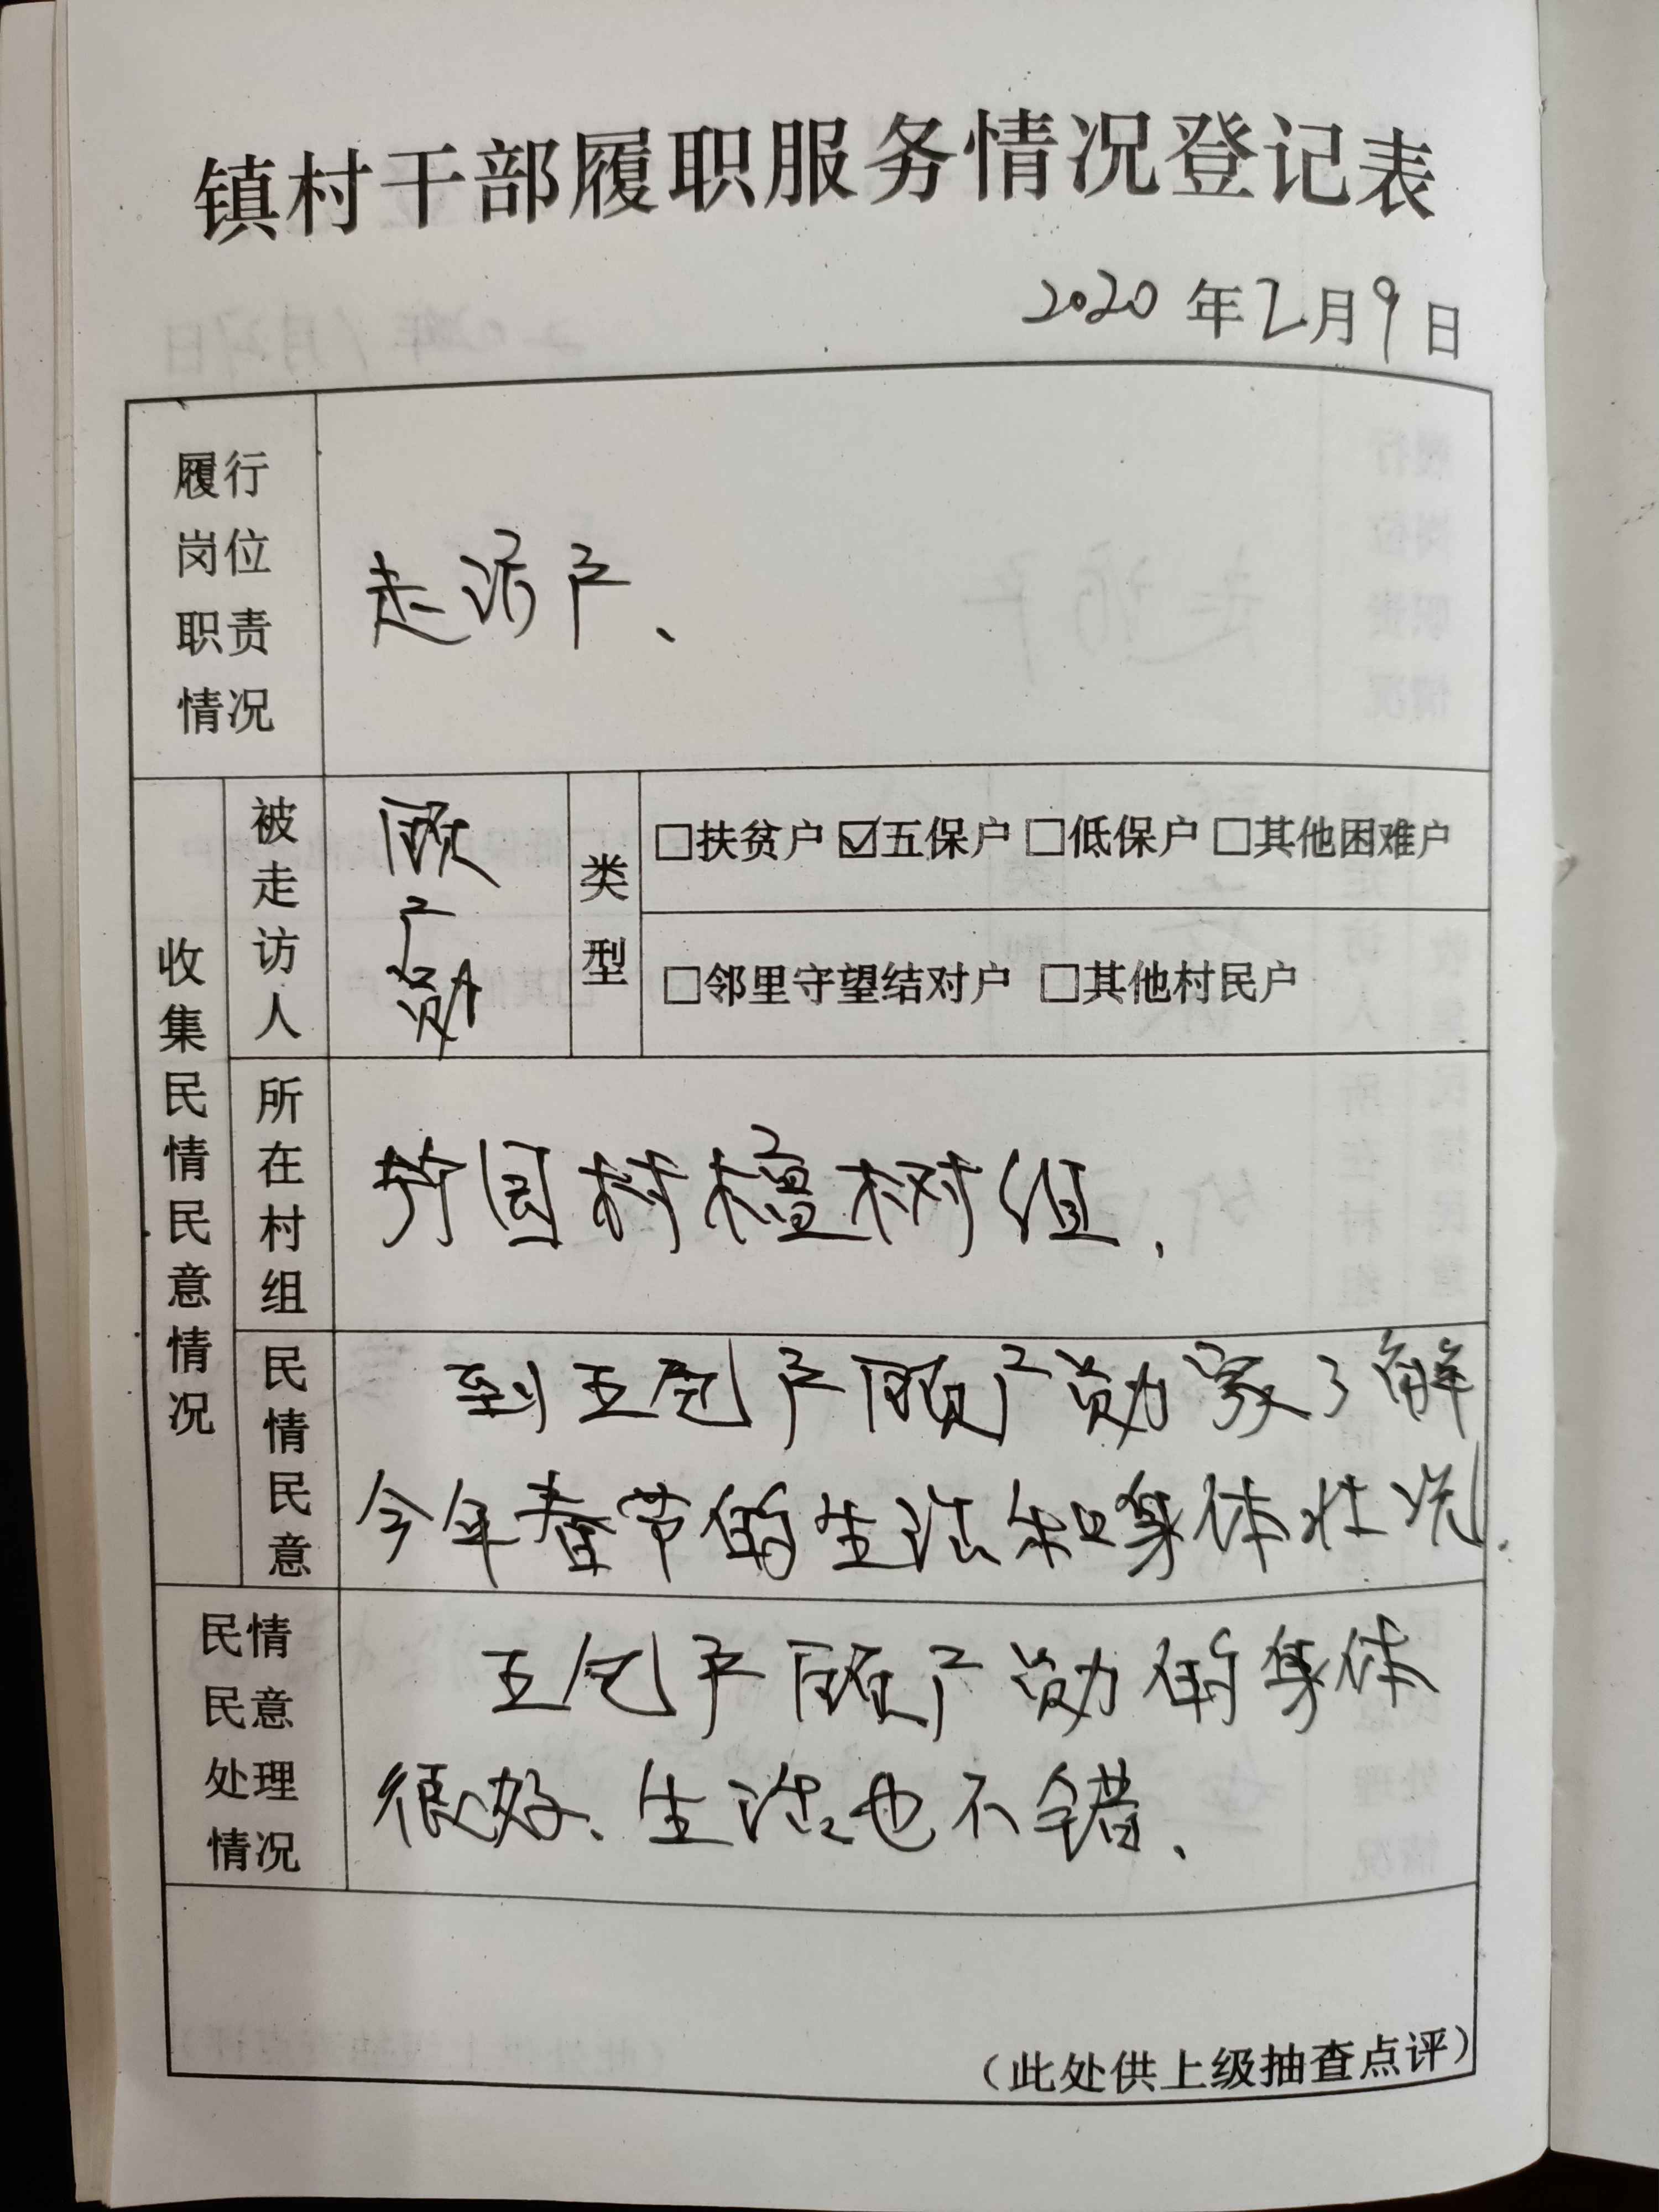 镇村干部履职服务情况登记表
2020年2月9日
履行
岗位
职责
情况
走访户、
收集民情民意情况
被走访人
顾广勋
类型
□扶贫户 ☑五保户 □低保户 □其他困难户
□邻里守望结对户 □其他村民户
所在村组
竹园村檀树组.
民情民意
到五包户顾广勋家了解
今年春节的生活和身体状况.
民情
民意
处理
情况
五包户顾广勋的身体
很好、生活也不错、
（此处供上级抽查点评）